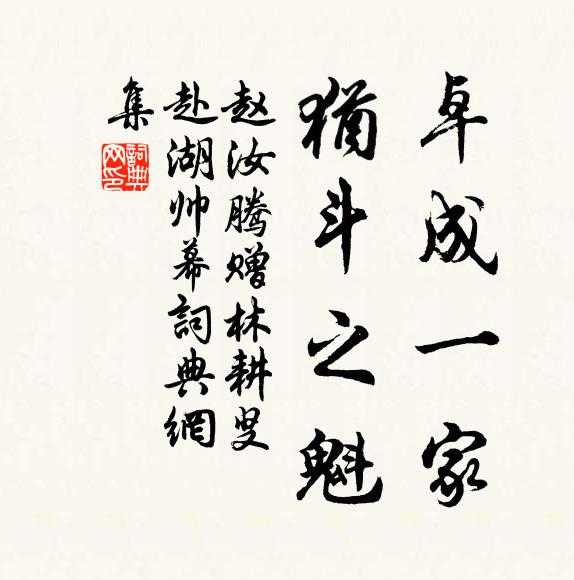 卓成一家
猶斗之魁
赵汝腾赠林耕叟
赴湖帅幕詞典網
集
詞典
网印